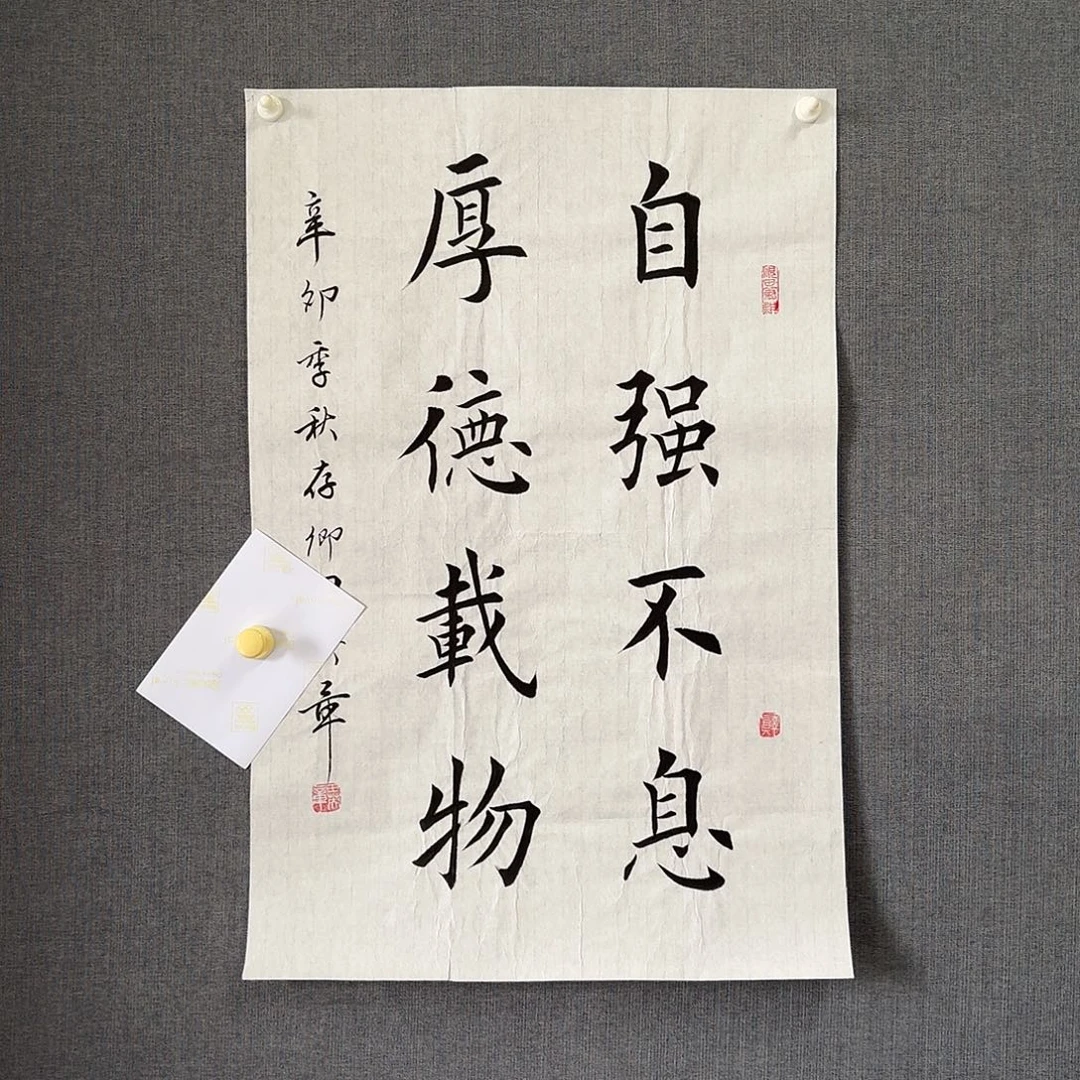 自强不息
厚德載物
辛卯季秋存卿 章